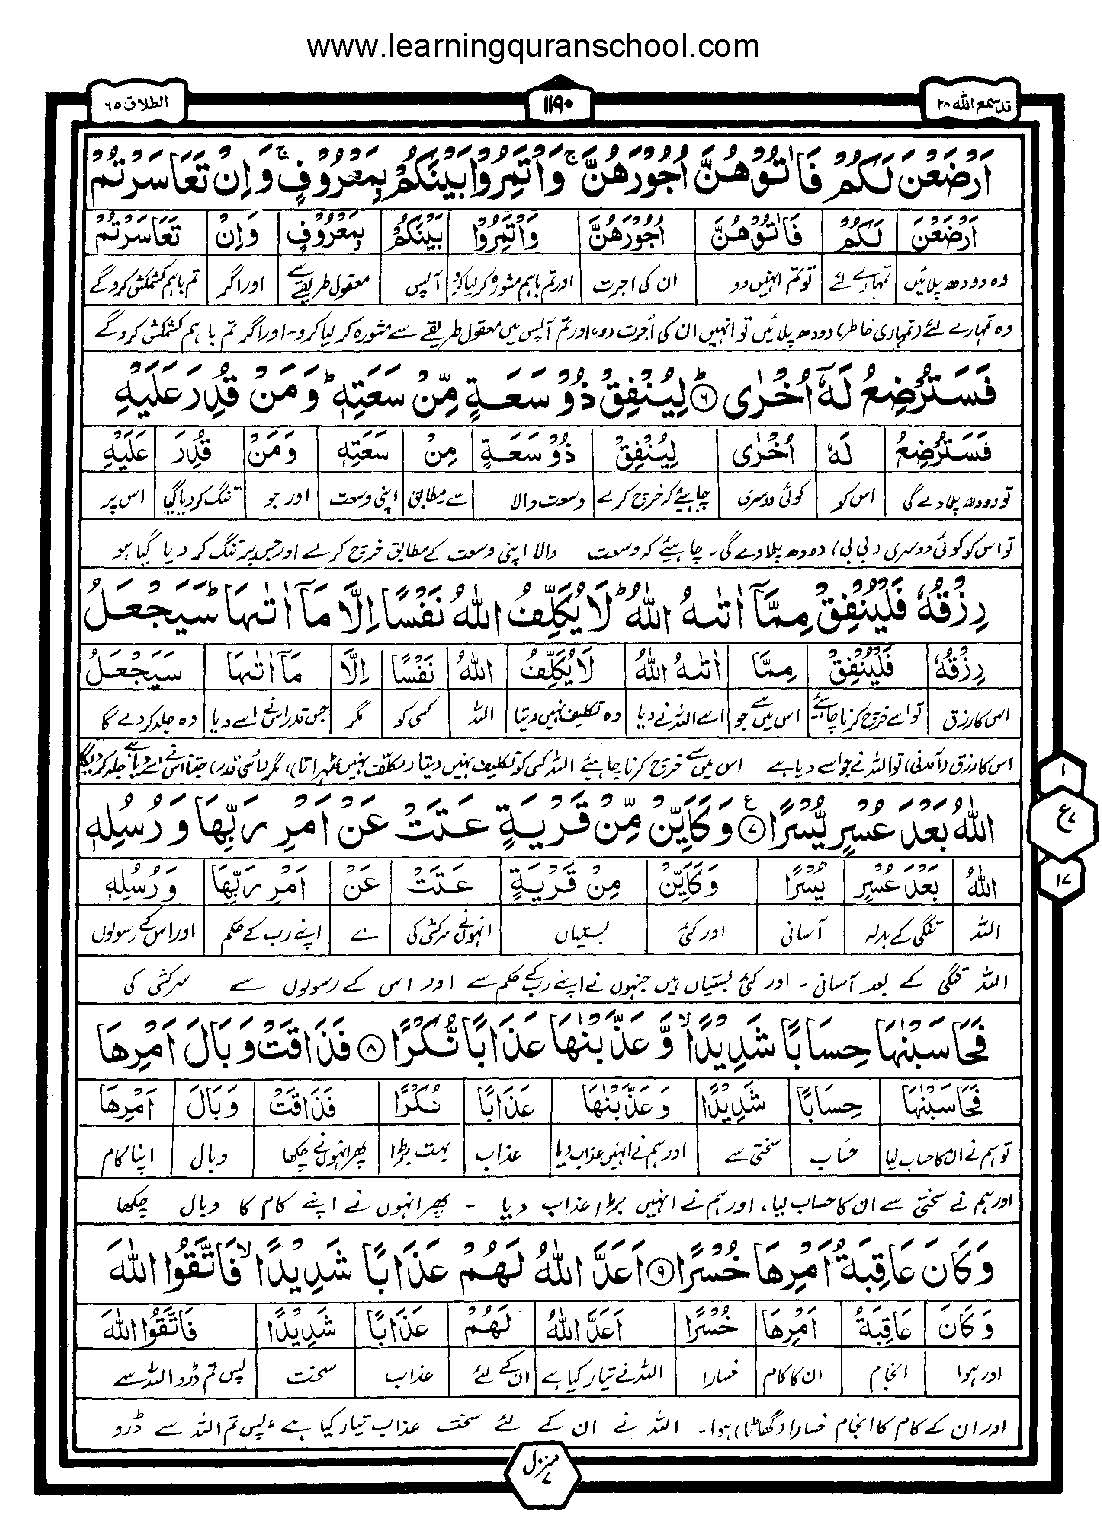 www.learningquranschool.com
قد سمع الله ٢٨
١١٩٠
الطلاق ٦٥
اَرْضَعْنَ لَكُمْ فَاٰتُوْهُنَّ اُجُوْرَهُنَّ ۚ وَاْتَمِرُوْا بَيْنَكُمْ بِمَعْرُوْفٍ ۚ وَاِنْ تَعَاسَرْتُمْ
اَرْضَعْنَ لَكُمْ فَاٰتُوْهُنَّ اُجُوْرَهُنَّ وَاْتَمِرُوْا بَيْنَكُمْ بِمَعْرُوْفٍ وَاِنْ تَعَاسَرْتُمْ
وہ دودھ پلائیں تمہارے لئے تو تم انہیں دو ان کی اجرت اور تم باہم مشورہ کر لیا کرو آپس معقول طریقے سے اور اگر تم باہم کشمکش کرو گے
وہ تمہارے لئے (تمہاری خاطر) دودھ پلائیں تو انہیں ان کی اُجرت دو، اور تم آپس میں معقول طریقے سے مشورہ کر لیا کرو۔ اور اگر تم باہم کشمکش کرو گے
فَسَتُرْضِعُ لَهٗۤ اُخْرٰى ؕ۶ لِيُنْفِقْ ذُوْ سَعَةٍ مِّنْ سَعَتِهٖ ؕ وَمَنْ قُدِرَ عَلَيْهِ
فَسَتُرْضِعُ لَهٗ اُخْرٰى لِيُنْفِقْ ذُوْ سَعَةٍ مِنْ سَعَتِهٖ وَمَنْ قُدِرَ عَلَيْهِ
تو دودھ پلا دے گی اس کو کوئی دوسری چاہیئے کہ خرچ کرے وسعت والا سے مطابق اپنی وسعت اور جو تنگ کر دیا گیا اس پر
تو اس کو کوئی دوسری (بی بی) دودھ پلا دے گی۔ چاہیئے کہ وسعت والا اپنی وسعت کے مطابق خرچ کرے اور جس پر تنگ کر دیا گیا ہو
رِزْقُهٗ فَلْيُنْفِقْ مِمَّاۤ اٰتٰىهُ اللّٰهُ ؕ لَا يُكَلِّفُ اللّٰهُ نَفْسًا اِلَّا مَاۤ اٰتٰىهَا ؕ سَيَجْعَلُ
رِزْقُهٗ فَلْيُنْفِقْ مِمَّا اٰتٰىهُ اللّٰهُ لَا يُكَلِّفُ اللّٰهُ نَفْسًا اِلَّا مَاۤ اٰتٰىهَا سَيَجْعَلُ
اس کا رزق تو اسے خرچ کرنا چاہیئے اس میں سے جو اسے اللہ نے دیا وہ تکلیف نہیں دیتا اللہ کسی کو مگر جس قدر اس نے اسے دیا وہ جلد کر دے گا
اس کا رزق (آمدنی) تو اللہ نے جو اسے دیا ہے اس میں سے خرچ کرنا چاہیئے اللہ کسی کو تکلیف نہیں دیتا (مکلّف نہیں ٹھہراتا)، مگر (اسی قدر) جتنا اس نے اسے دیا ہے جلد کر دیگا
اللّٰهُ بَعْدَ عُسْرٍ يُّسْرًا ۧ۷ وَكَاَيِّنْ مِّنْ قَرْيَةٍ عَتَتْ عَنْ اَمْرِ رَبِّهَا وَرُسُلِهٖ
اللّٰهُ بَعْدَ عُسْرٍ يُسْرًا وَكَاَيِّنْ مِنْ قَرْيَةٍ عَتَتْ عَنْ اَمْرِ رَبِّهَا وَرُسُلِهٖ
اللہ تنگی کے بدلہ آسانی اور کئی بستیاں انہوں نے سرکشی کی سے اپنے رب کے حکم اور اس کے رسولوں
اللہ تنگی کے بعد آسانی۔ اور کئی بستیاں ہیں جنہوں نے اپنے رب کے حکم سے اور اس کے رسولوں سے سرکشی کی
١
ع ٧
١٧
فَحَاسَبْنٰهَا حِسَابًا شَدِيْدًا ۙ وَّعَذَّبْنٰهَا عَذَابًا نُّكْرًا ۸ فَذَاقَتْ وَبَالَ اَمْرِهَا
فَحَاسَبْنٰهَا حِسَابًا شَدِيْدًا وَعَذَّبْنٰهَا عَذَابًا نُكْرًا فَذَاقَتْ وَبَالَ اَمْرِهَا
تو ہم نے ان کا حساب لیا حساب سختی سے اور ہم نے انہیں عذاب دیا عذاب بہت بڑا پھر انہوں نے چکھا وبال اپنا کام
اور ہم نے سختی سے ان کا حساب لیا، اور ہم نے انہیں بڑا عذاب دیا ۔ پھر انہوں نے اپنے کام کا وبال چکھا
وَكَانَ عَاقِبَةُ اَمْرِهَا خُسْرًا ۹ اَعَدَّ اللّٰهُ لَهُمْ عَذَابًا شَدِيْدًا ۙ فَاتَّقُوا اللّٰهَ
وَكَانَ عَاقِبَةُ اَمْرِهَا خُسْرًا اَعَدَّ اللّٰهُ لَهُمْ عَذَابًا شَدِيْدًا فَاتَّقُوا اللّٰهَ
اور ہوا انجام ان کا کام خسارا اللہ نے تیار کیا ہے ان کے لئے عذاب سخت پس تم ڈرو اللہ سے
اور ان کے کام کا انجام خسارا (گھاٹا) ہوا۔ اللہ نے ان کے لئے سخت عذاب تیار کیا ہے، پس تم اللہ سے ڈرو
منزل ٧